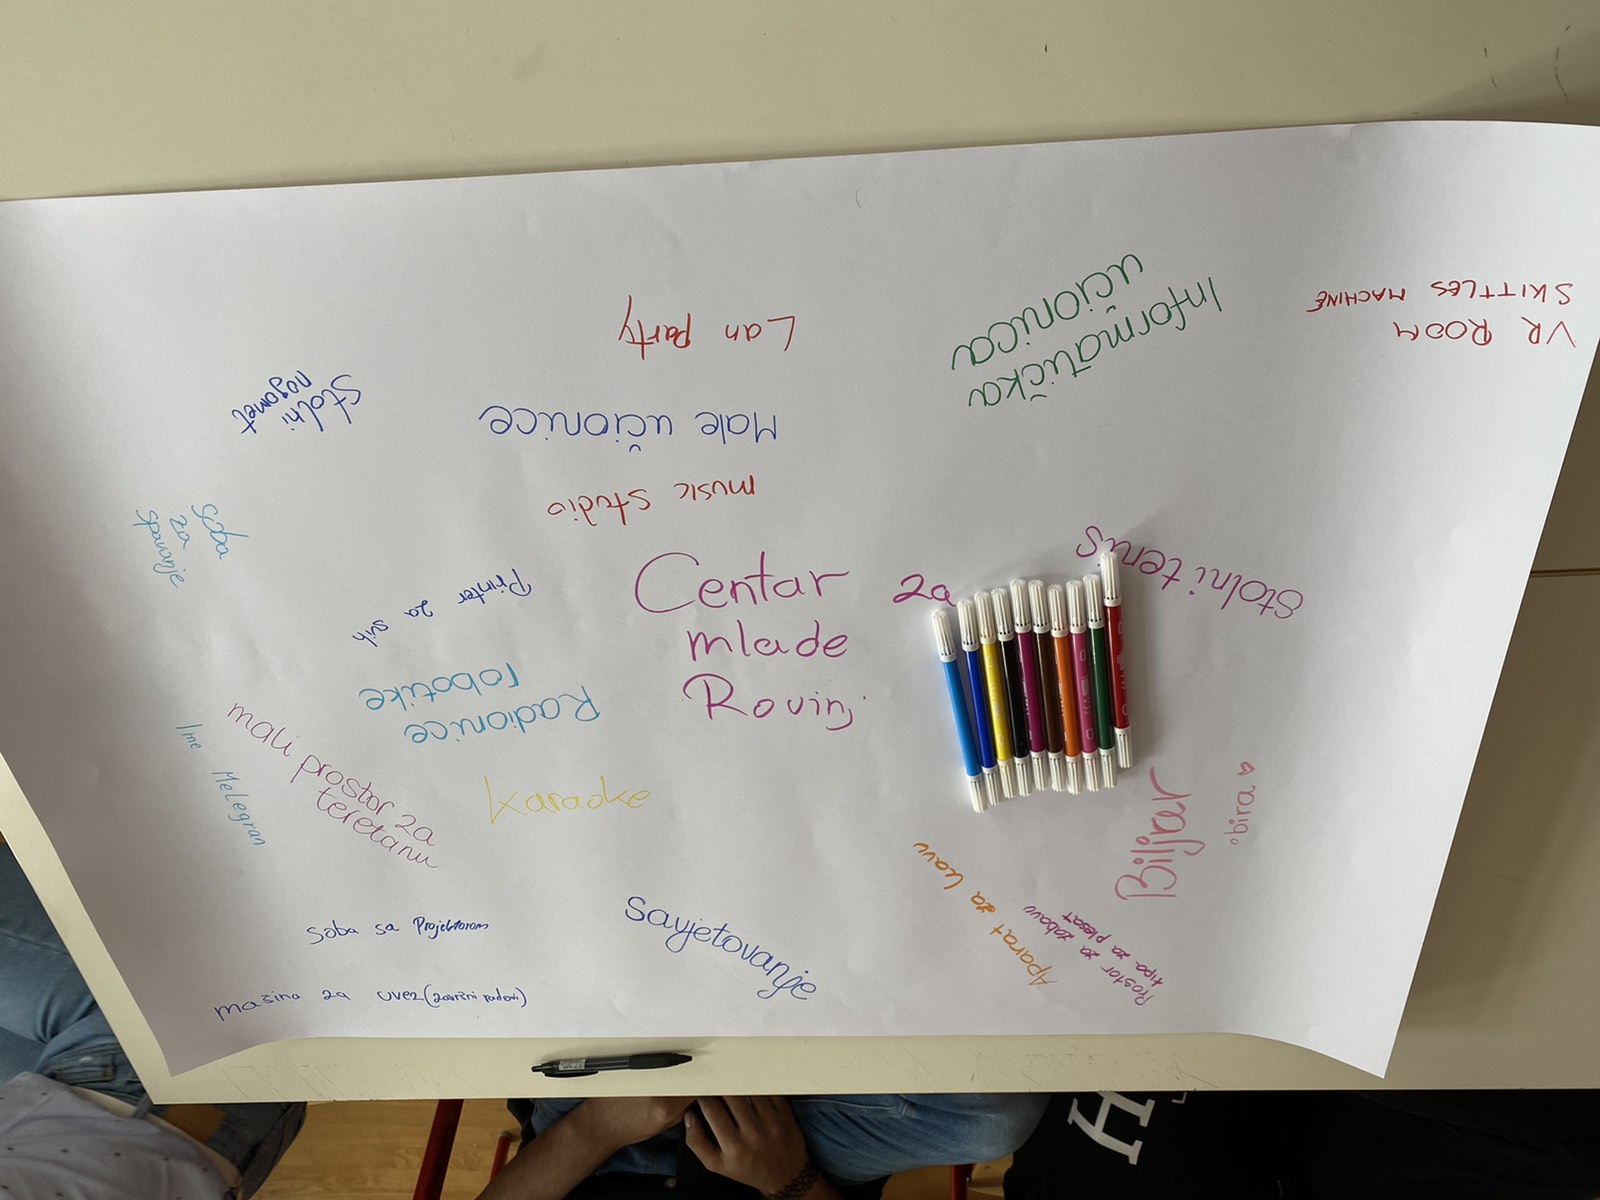 Centar za
mlade
Rovinj
music studio
Male učionice
Lan party
Informatička
učionica
VR ROOM
SKITTLES MACHINE
Stolni tenis
Stolni
nogomet
Soba
za
spavanje
Printer za svih
Radionice
robotike
Karaoke
mali prostor za
teretanu
Ime Melegran
soba sa Projektorom
mašina za uvez (završni radovi)
Savjetovanje
Aparat za kavu
Prostor za zabavu
tipa za plesat
Biljar